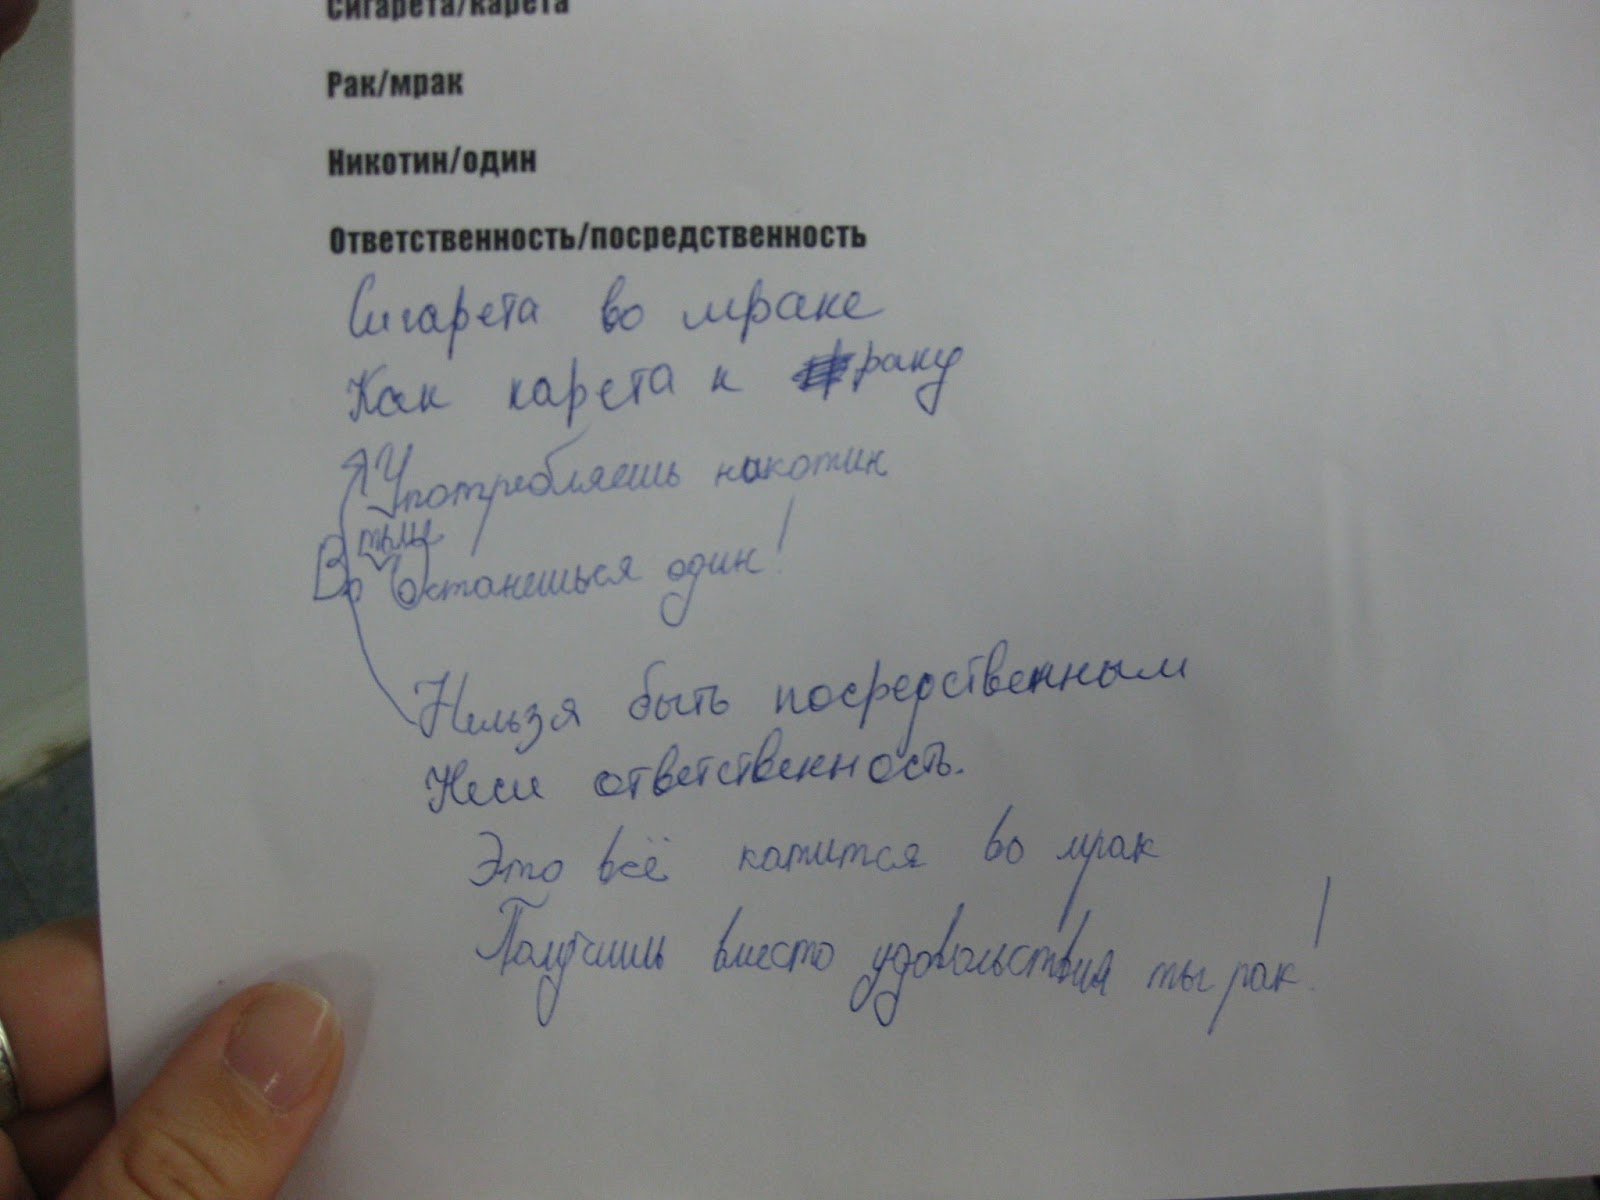 Сигарета/карета
Рак/мрак
Никотин/один
Ответственность/посредственность
Сигарета во мраке
Как карета к раку
Употребляешь никотин
Во тьме останешься один!
Нельзя быть посредственным
Неси ответственность.
Это всё катится во мрак
Получишь вместо удовольствия ты рак!